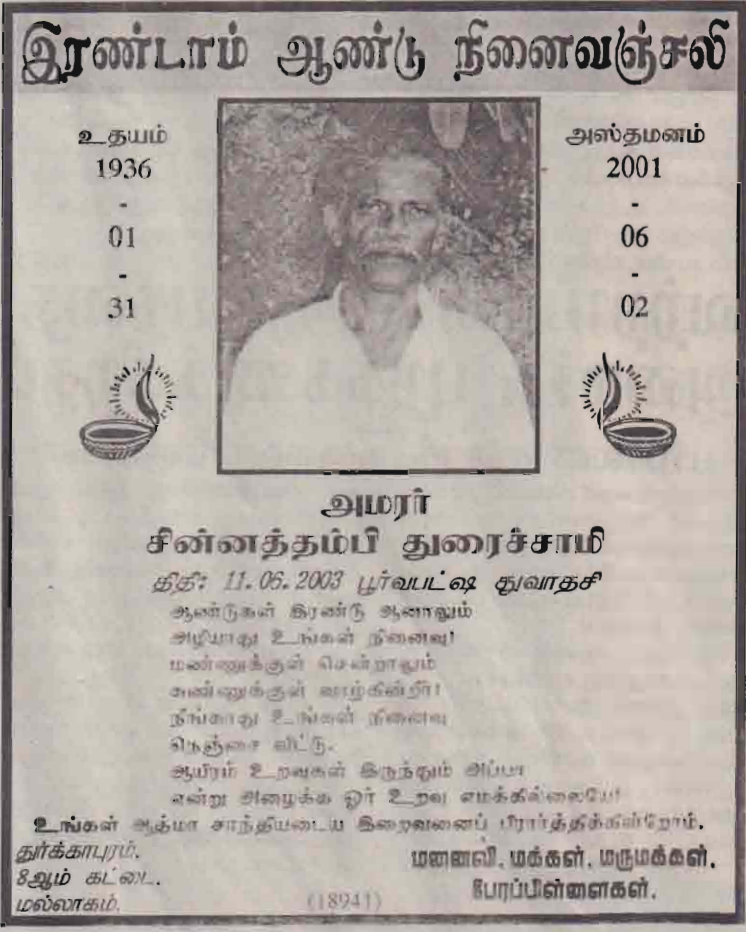 இரண்டாம் ஆண்டு நினைவஞ்சலி
உதயம்
1936
-
01
-
31
அஸ்தமனம்
2001
-
06
-
02
அமரர்
சின்னத்தம்பி துரைச்சாமி
திதி: 11.06.2003 பூர்வபட்ஷ துவாதசி
ஆண்டுகள் இரண்டு ஆனாலும்
அழியாது உங்கள் நினைவு!
மண்ணுக்குள் சென்றாலும்
கண்ணுக்குள் வாழ்கின்றீர்!
நீங்காது உங்கள் நினைவு
நெஞ்சை விட்டு.
ஆயிரம் உறவுகள் இருந்தும் அப்பா
என்று அழைக்க ஓர் உறவு எமக்கில்லையே!
உங்கள் ஆத்மா சாந்தியடைய இறைவனைப் பிரார்த்திக்கின்றோம்.
துர்க்காபுரம்.
8ஆம் கட்டை.
மல்லாகம்.
மனைவி, மக்கள், மருமக்கள்,
பேரப்பிள்ளைகள்.
(18941)